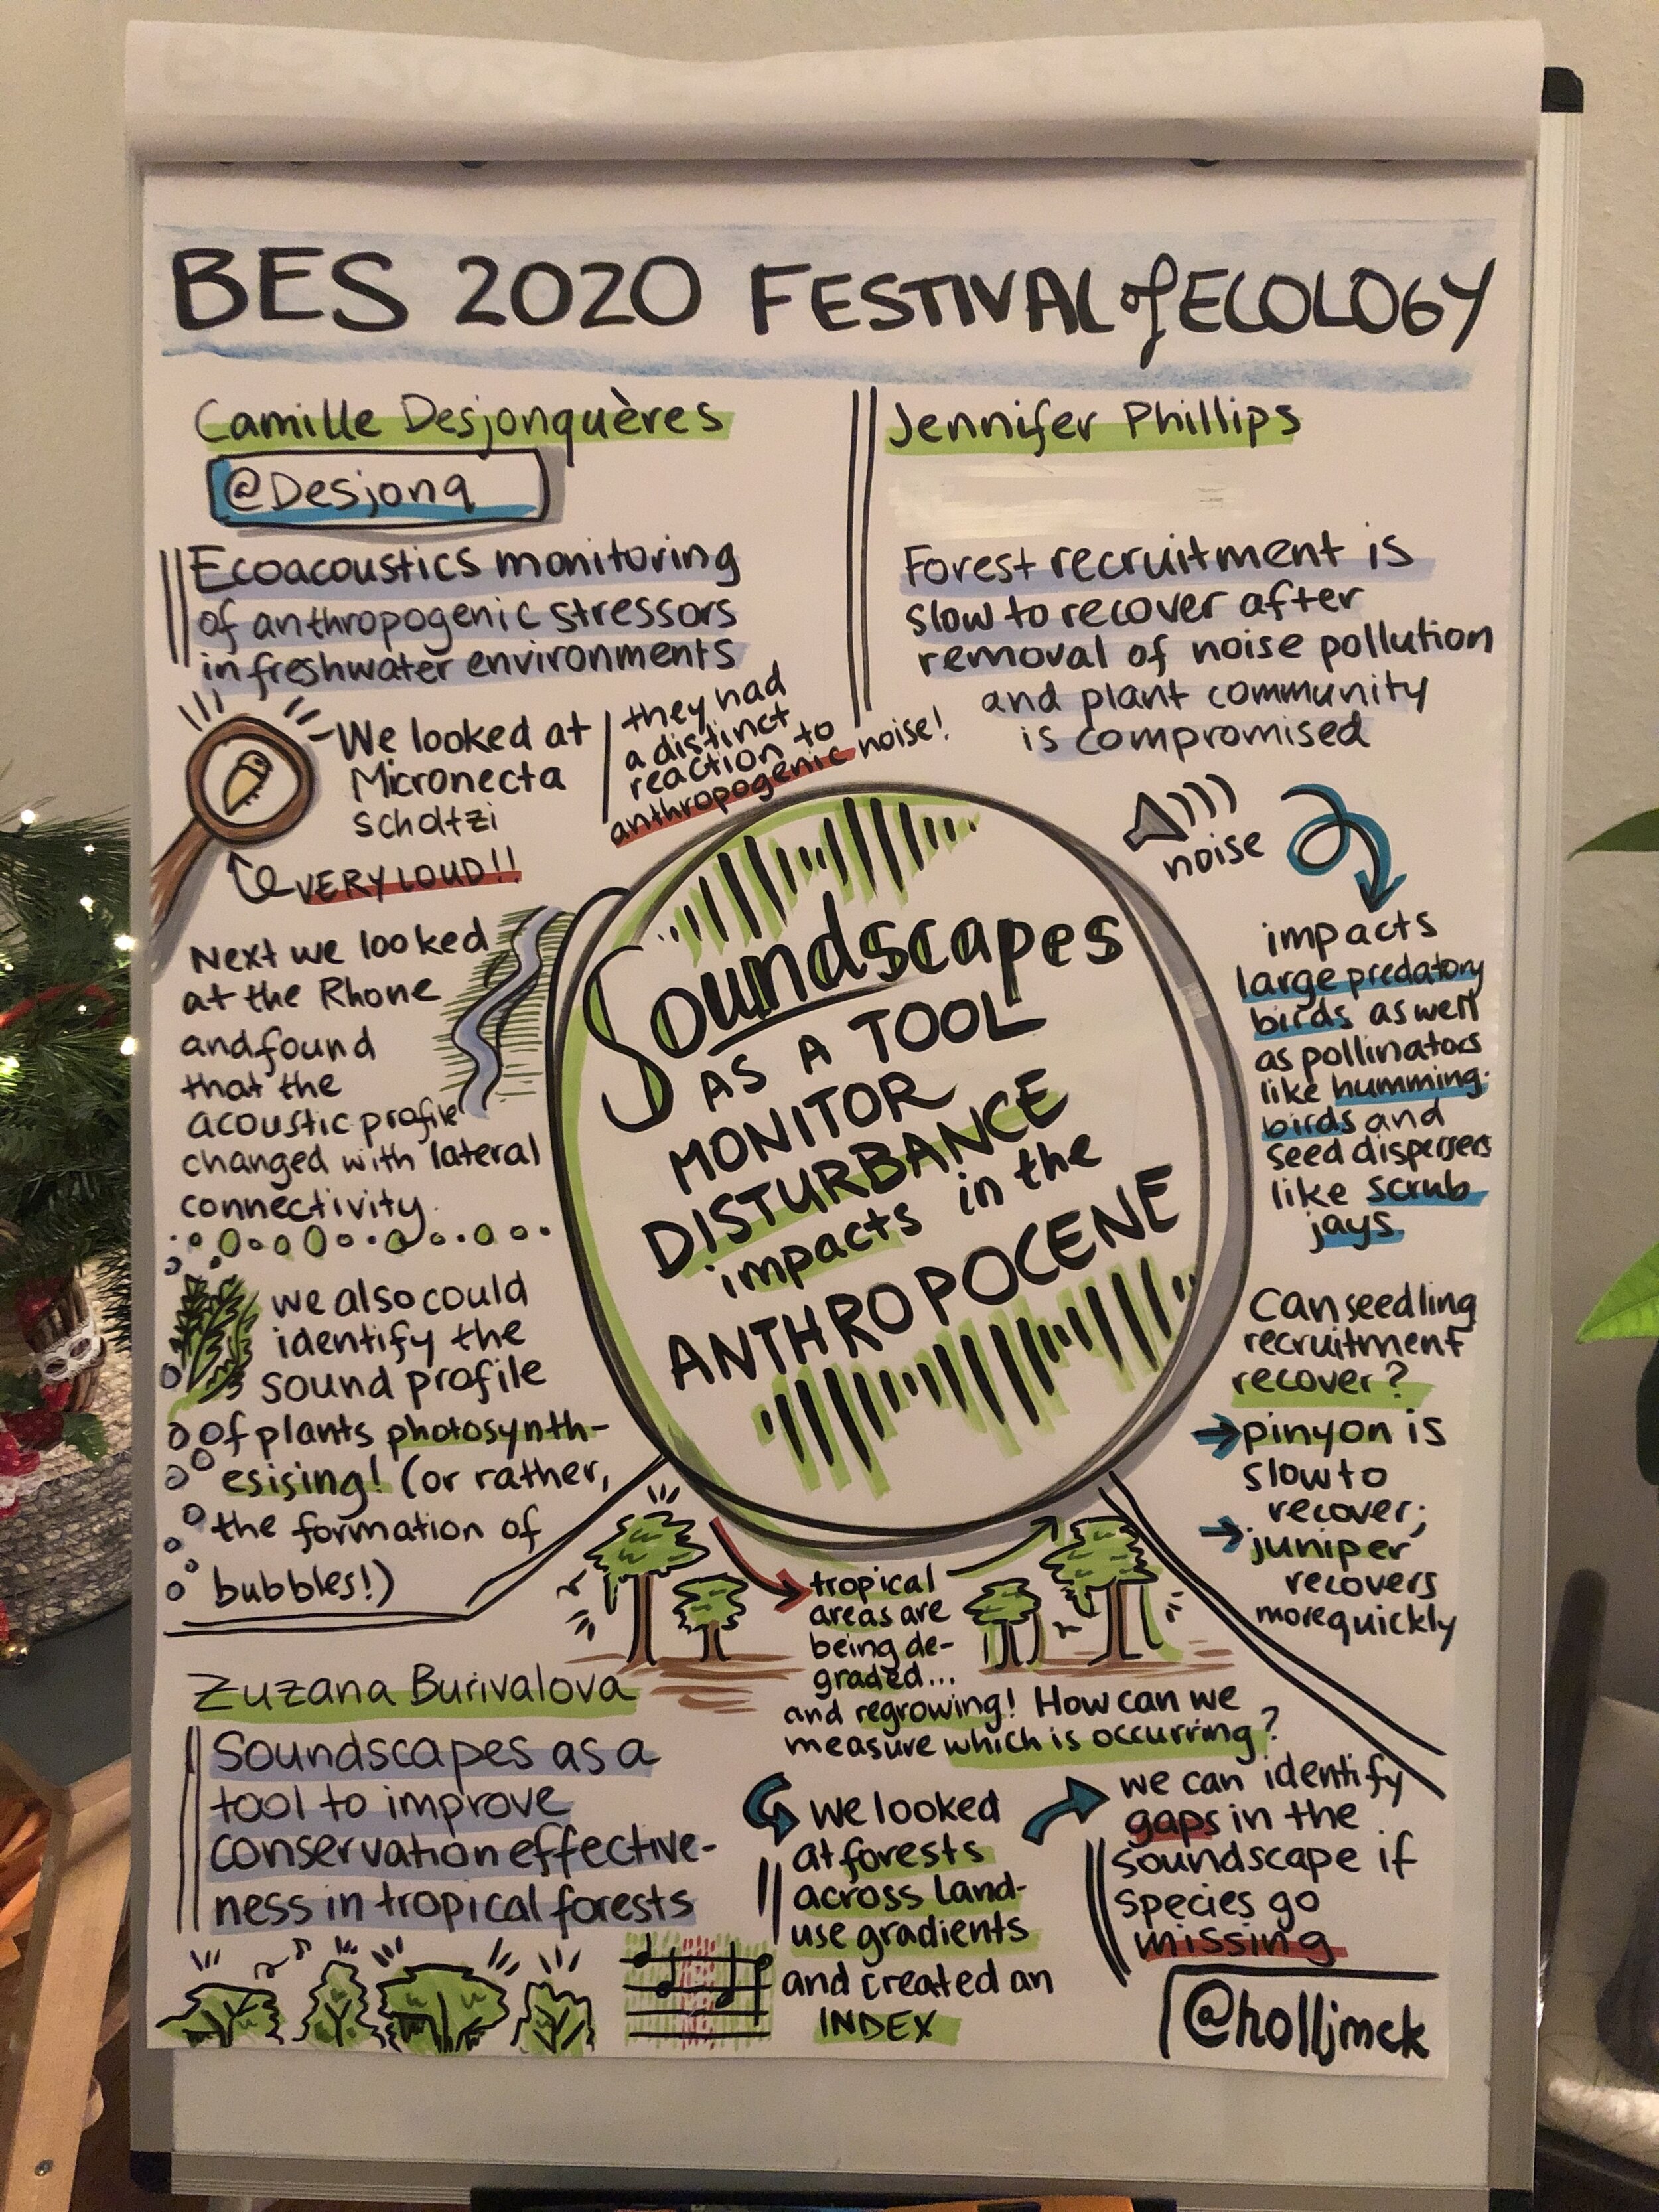 BES 2020 FESTIVAL of ECOLOGY
Camille Desjonquères
@Desjonq
Ecoacoustics monitoring
of anthropogenic stressors
in freshwater environments
We looked at
Micronecta
scholtzi
VERY LOUD!!
they had
a distinct
reaction to
anthropogenic noise!
Next we looked
at the Rhone
and found
that the
acoustic profile
changed with lateral
connectivity.
we also could
identify the
sound profile
of plants photosynth-
esising! (or rather,
the formation of
bubbles!)
Soundscapes
AS A TOOL
MONITOR
DISTURBANCE
impacts in the
ANTHROPOCENE
Jennifer Phillips
Forest recruitment is
slow to recover after
removal of noise pollution
and plant community
is compromised
noise
impacts
large predatory
birds as well
as pollinators
like humming-
birds and
seed dispersers
like scrub
jays.
Can seedling
recruitment
recover?
pinyon is
slow to
recover;
juniper
recovers
more quickly
Zuzana Burivalova
Soundscapes as a
tool to improve
conservation effective-
ness in tropical forests
tropical
areas are
being de-
graded...
and regrowing! How can we
measure which is occurring?
we looked
at forests
across land-
use gradients
and created an
INDEX
we can identify
gaps in the
soundscape if
species go
missing
@holljmck